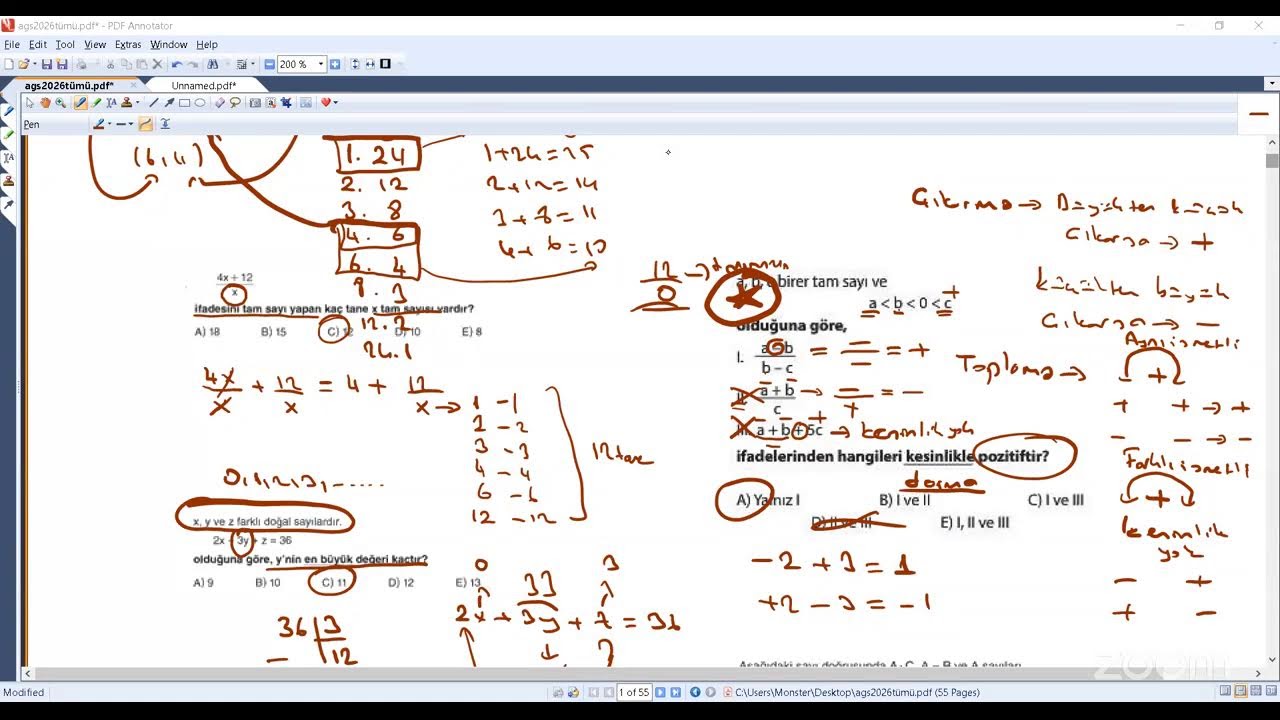 ags2026tümü.pdf* - PDF Annotator
File Edit Tool View Extras Window Help
200 %
ags2026tümü.pdf* Unnamed.pdf*
Pen
(6,4)
1. 24
2. 12
3. 8
4. 6
6. 4
8. 3
12. 2
24. 1
1+24=25
2+12=14
3+8=11
4+6=10
4x + 12
x
ifadesini tam sayı yapan kaç tane x tam sayısı vardır?
A) 18 B) 15 C) 12 D) 10 E) 8
4x/x + 12/x = 4 + 12/x
1 -1
2 -2
3 -3
4 -4
6 -6
12 -12
12 tane
0,1,2,3,.....
x, y ve z farklı doğal sayılardır.
2x + 3y + z = 36
olduğuna göre, y'nin en büyük değeri kaçtır?
A) 9 B) 10 C) 11 D) 12 E) 13
0 33 3
2x + 3y + z = 36
36 3
- 12
12/0 → tanımsız
a, b, c birer tam sayı ve
a < b < 0 < c +
olduğuna göre,
I. a - b
b - c
= — = +
II. a + b
c
→ — = -
+
III. a + b + 5c → kesinlik yok
ifadelerinden hangileri kesinlikle pozitiftir?
daima
A) Yalnız I B) I ve II C) I ve III
D) II ve III E) I, II ve III
-2 + 3 = 1
+2 - 3 = -1
Çıkarma → Büyükten küçük
Çıkarsa → +
küçükten büyük
Çıkarsa → -
Toplama →
Aynı işaretli
- + -
+ + → +
- - → -
Farklı işaretli
+
kesinlik
yok
- +
+ -
Aşağıdaki sayı doğrusunda A, C, A – B ve A sayıları
zoom
Modified
1 of 55
C:\Users\Monster\Desktop\ags2026tümü.pdf (55 Pages)